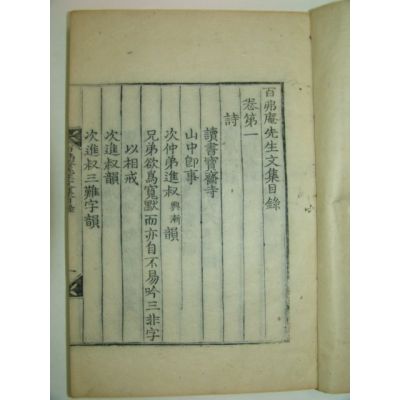 百弗庵先生文集目錄
卷第一
詩
讀書寶齋寺
山中卽事
次仲弟進叔興漸韻
兄弟欲爲寬默而亦自不易吟三非字
以相戒
次進叔韻
次進叔三難字韻